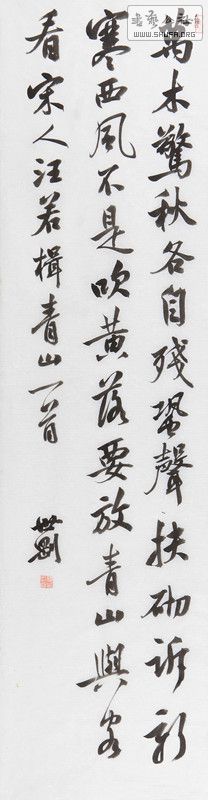 萬木驚秋各自殘蛩聲扶砌訴新
寒西風不是吹黃落要放青山與客
看宋人汪若楫青山一首
書藝公社
WWW.SHUFA.ORG